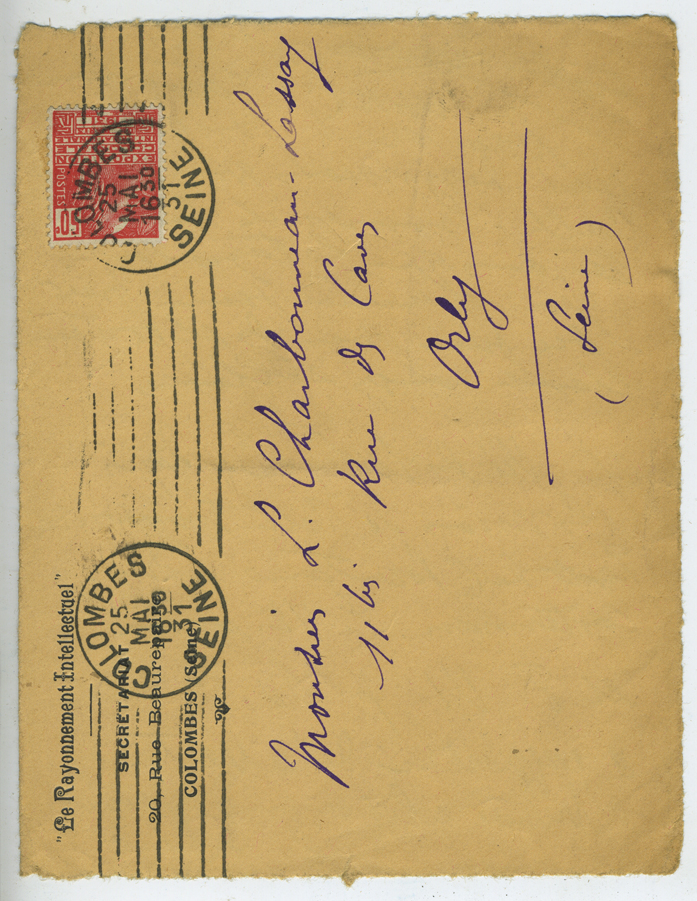 "Le Rayonnement Intellectuel"
SECRÉTARIAT
20, Rue Beaurepaire
COLOMBES (Seine)
COLOMBES
25
MAI
16 30
31
SEINE
COLOMBES
25
MAI
16 30
31
SEINE
POSTES
Monsieur L. Charbonneau-Lassay
11 bis Rue des Caves
Orly
(Seine)